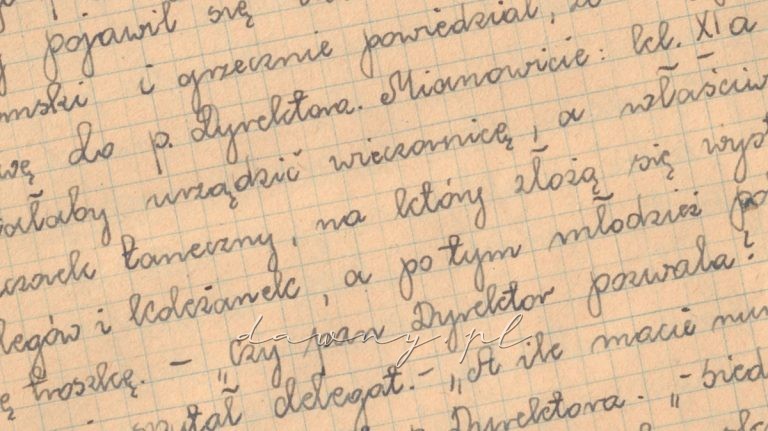 pojawił się
i grzecznie powiedział,
do p. Dyrektora. Mianowicie: kl. XI a
urządzić wieczornicę, a właściw
taneczny, na który złożą się wyst
legów i koleżanek, a po tym młodzież po
ę troszkę. — „Czy pan Dyrektor pozwala?
dawny.pl
delegat. — „A ile macie num
Dyrektora. „— Sied